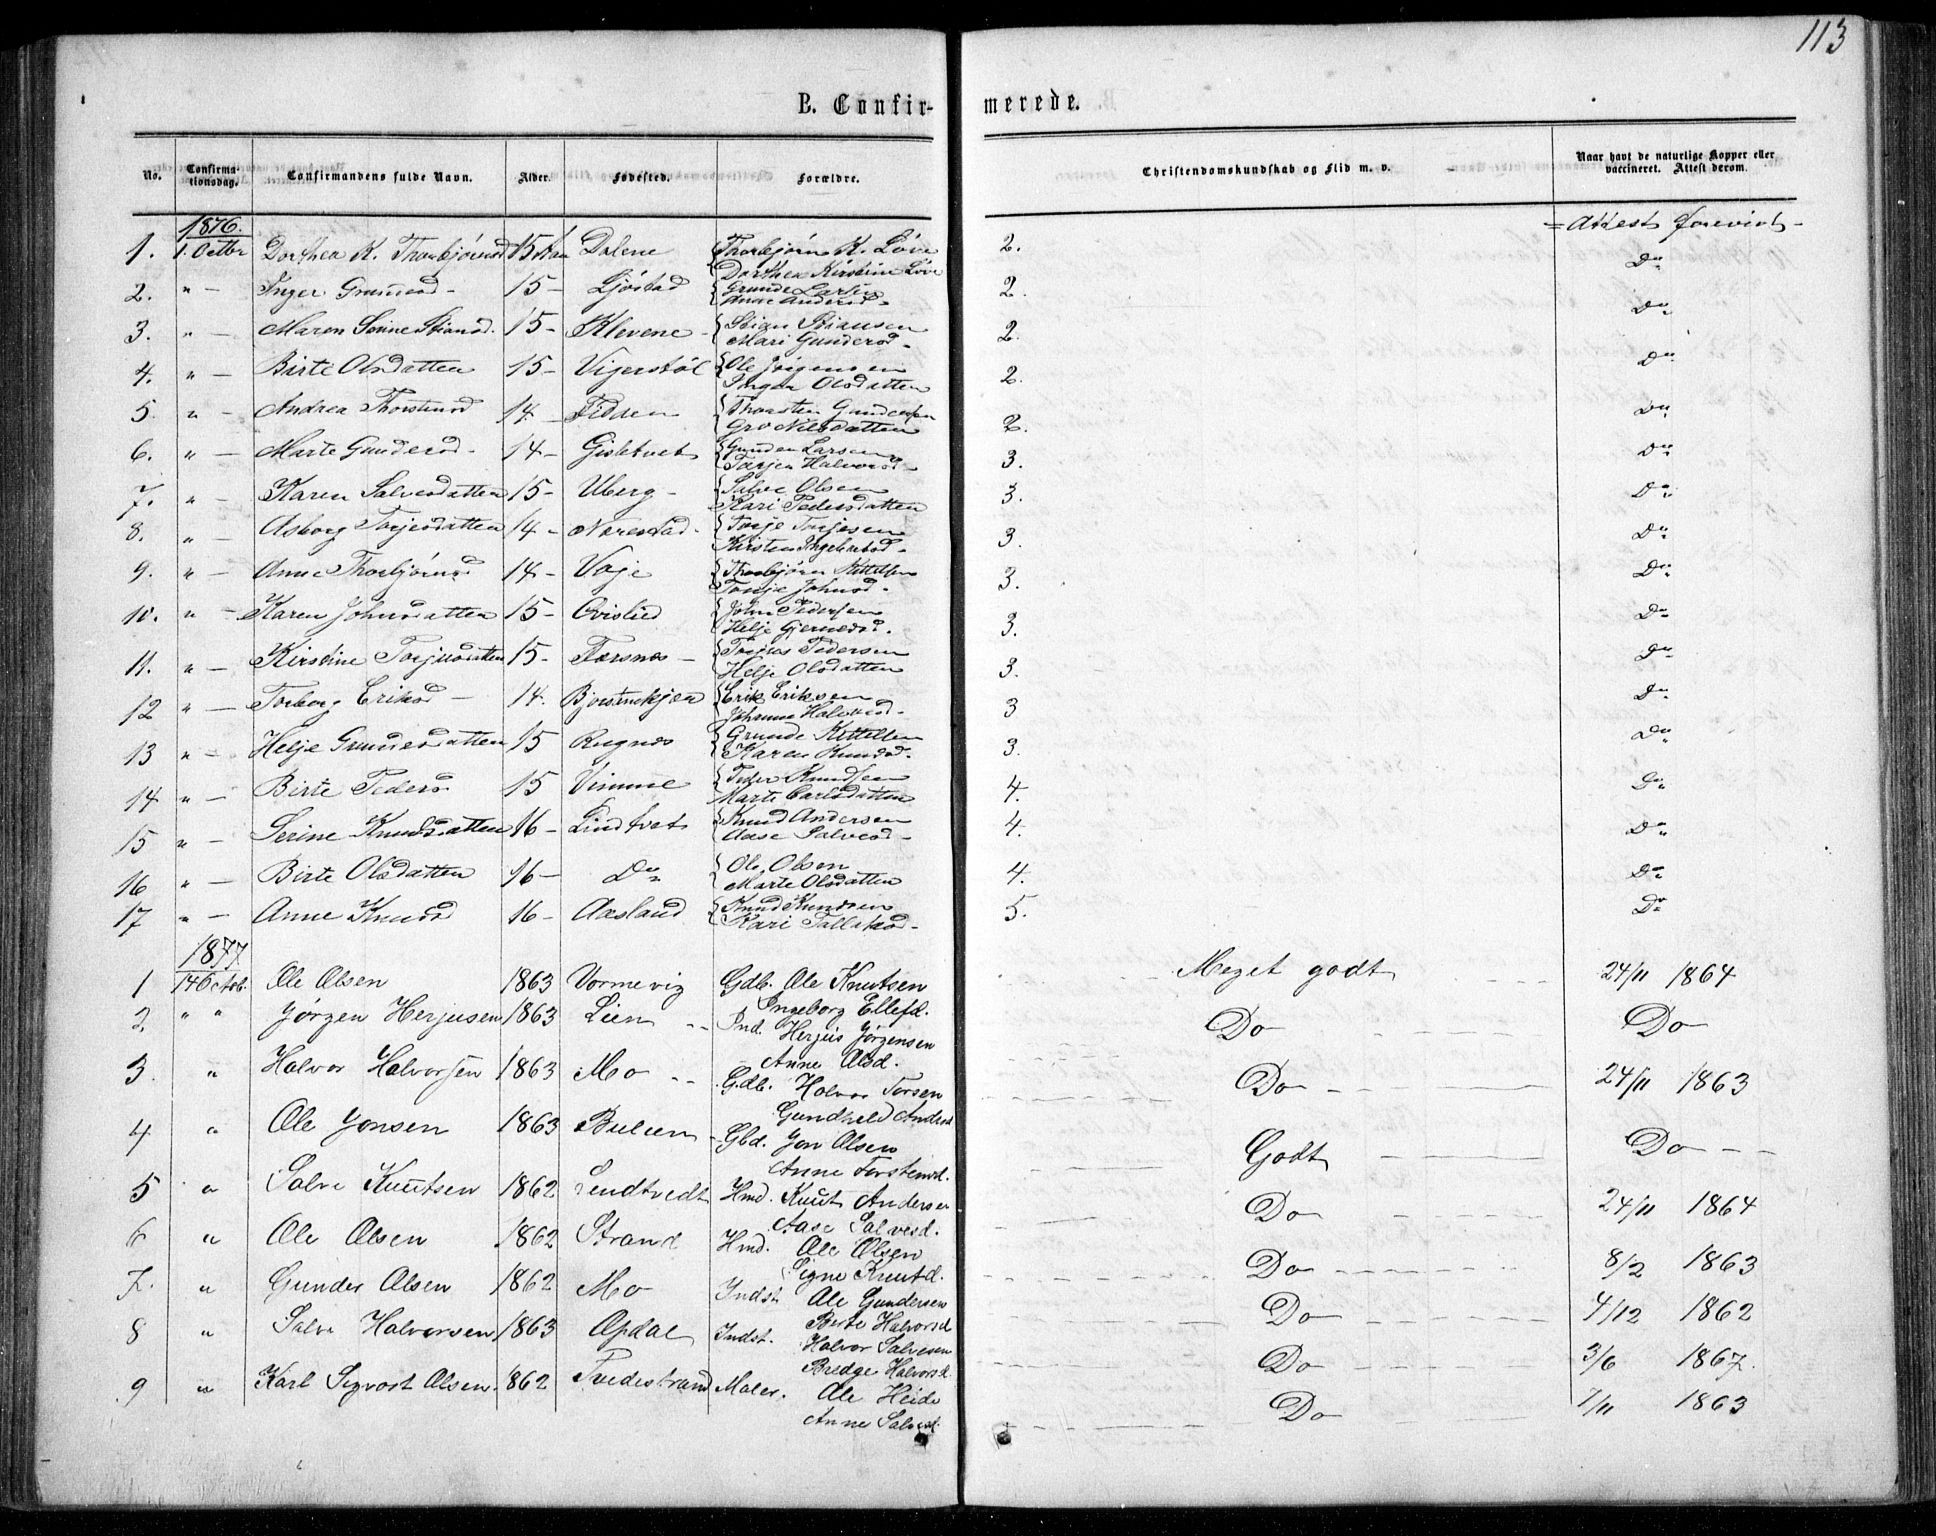 113
B. Confir-
merede.
No. Confirma-tionsdag. Confirmandens fulde Navn. Alder. Fødested. Forældre. Christendomskundskab og Flid m. v. Naar havt de naturlige Kopper eller vaccineret. Attest derom.
1876.
1. 1. Octbr Dorthea K. Thorbjørnsd 15 Aar Dalene Thorbjørn K. Løve 2. Attest forevist
Dorthea Kirstine Løve Do
2. " Inger Grunnsd 15 Ljøstad Grunde Larsen 2.
Anne Andersd Do
3. " Maren Serine Stiansd. 15 Klevene Stian Stiansen 2.
Mari Gundersd
4. " Birte Olsdatten 15 Vigerstøl Ole Jørgensen 2. Do
Inger Olsdatten
5. " Andrea Thorstensd 14 Fidden Thorsten Gundersen 2. Do
Gro Nilsdatten
6. " Marte Gundersd 14 Gisletvet Gunder Larsen 3. Do
Torjer Halvorsd
7. " Karen Salvesdatten 15 Uberg Salve Olsen 3. Do
Kari Pedersdatten
8. " Asborg Torjesdatten 14 Narestad Torje Torjesen 3. Do
Kirsten Ingebretsd
9. " Anne Thorbjørnsd 14 Voje Thorbjørn Kittelsen 3. Do
Tonje Johnsd
10. " Karen Johnsdatten 15 Ovislid John Pedersen 3. Do
Helje Gjernesd.
11. " Kirstine Torjusdatten 15 Torjus Pedersen 3. Do
Helje Olsdatten
12 " Torborg Eriksd 14. Erik Eriksen 3 Do
Johanne Halvorsd
13 " Helje Grundesdatten 15 Rugnes Grunde Kittelsen 3. Do
Karen Knudsd.
14 " Birte Pedersd 15 Vimme Peder Knudsen 4. Do
Marte Carlsdatten
15 " Serine Knudsdatten 16 Lindtvet Knud Andersen 4. Do
Aase Salvesd
16 " Birte Olsdatten 16 Do Ole Olsen 4. Do
Marte Olsdatten
17 " Anne Knudsd 16 Aasland Knud Knudsen 5. Do
Kari Tallaksd
1877.
1 14 Octob. Ole Olsen 1863 Vormevig Gdb. Ole Knutsen Meget godt 24/11 1864
Ingeborg Ellefd.
2. " " Jørgen Herjusen 1863 Lien Ind. Herjus Jørgensen Do Do
Anne Olsd.
3. " Halvor Halvorsen 1863 Mo Gdb. Halvor Torsen Do 24/11 1863
Gundheld Andersd
4 " Ole Jonsen 1863 Bulien Gbd. Jon Olsen Godt Do
Anne Torstensd.
5 " Salve Knutsen 1862 Lindtvedt Hmd. Knut Andersen Do 24/11 1864
Aase Salvesd.
6 " Ole Olsen 1862 Strand Hmd. Ole Olsen Do 8/2 1863
Signe Knutd.
7. " Gunder Olsen 1862 Mo Indst Ole Gundersen Do 4/12 1862
Berte Halvorsd
8 " Salve Halvorsen 1863 Opdal Indst. Halvor Salvesen Do 3/6 1867.
Bredge Halvorsd.
9 " Karl Sigvart Olsen. 1862 Tvedestrand Maler. Ole Heide Do 7/11 1863
Anne Salvesd.